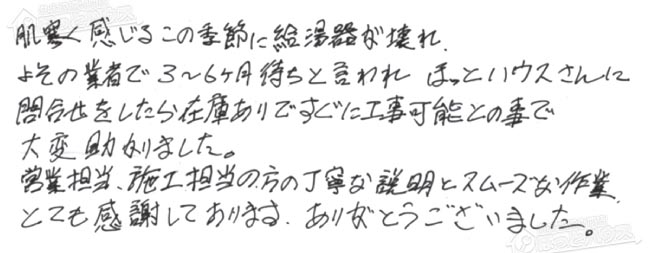 肌寒く感じるこの季節に給湯器が壊れ、
よその業者で3〜6ヶ月待ちと言われ ほっとハウスさんに
問合せをしたら在庫ありですぐに工事可能との事で
大変助かりました。
営業担当、施工担当の方の丁寧な説明とスムーズな作業、
とても感謝しております。ありがとうございました。